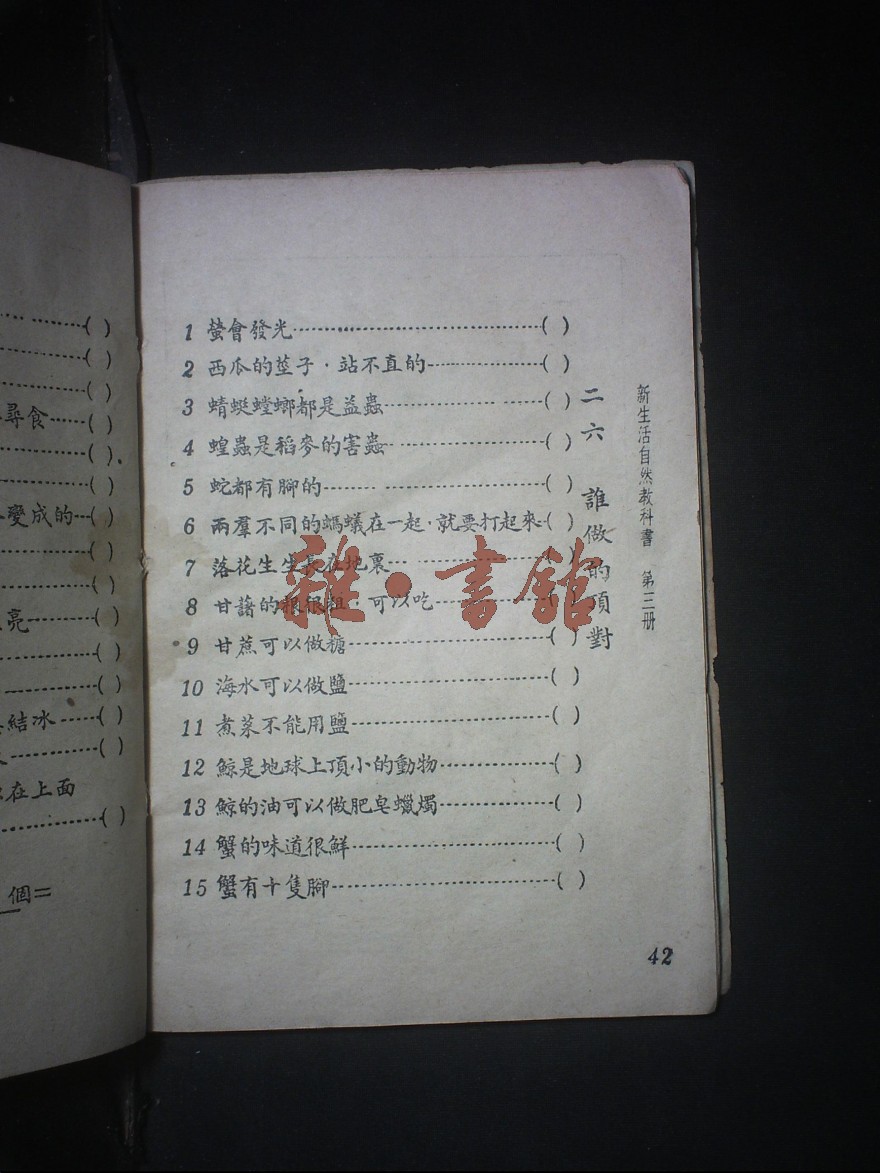 新生活自然教科書 第三册
二六 誰做的頂對
1 螢會發光……( )
2 西瓜的莖子·站不直的……( )
3 蜻蜓螳螂都是益蟲……( )
4 蝗蟲是稻麥的害蟲……( )
5 蛇都有腳的……( )
6 兩羣不同的螞蟻在一起·就要打起來…( )
7 落花生生長在地裏……( )
8 甘藷的根很粗·可以吃……( )
9 甘蔗可以做糖……( )
10 海水可以做鹽……( )
11 煮菜不能用鹽……( )
12 鯨是地球上頂小的動物……( )
13 鯨的油可以做肥皂蠟燭……( )
14 蟹的味道很鮮……( )
15 蟹有十隻腳……( )
42
雜·書館
……( )
……( )
……( )
尋食……( )
……( )
……( )
變成的…( )
……( )
……( )
亮……( )
……( )
……( )
結冰……( )
……( )
在上面
……( )
個=